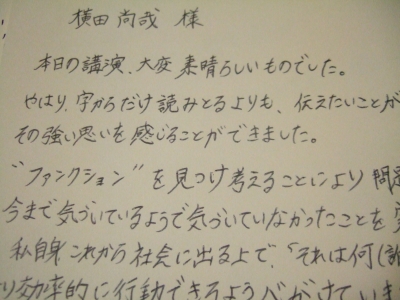 横田 尚哉 様
本日の講演、大変 素晴らしいものでした。
やはり、字からだけ読みとるよりも、伝えたいことが
その強い思いを感じることができました。
"ファンクション" を見つけ考えることにより 問題
今まで気づいているようで気づいていなかったことを
私自身これから社会に出る上で、「それは何(誰
り効率的に行動できるよう心がけていき